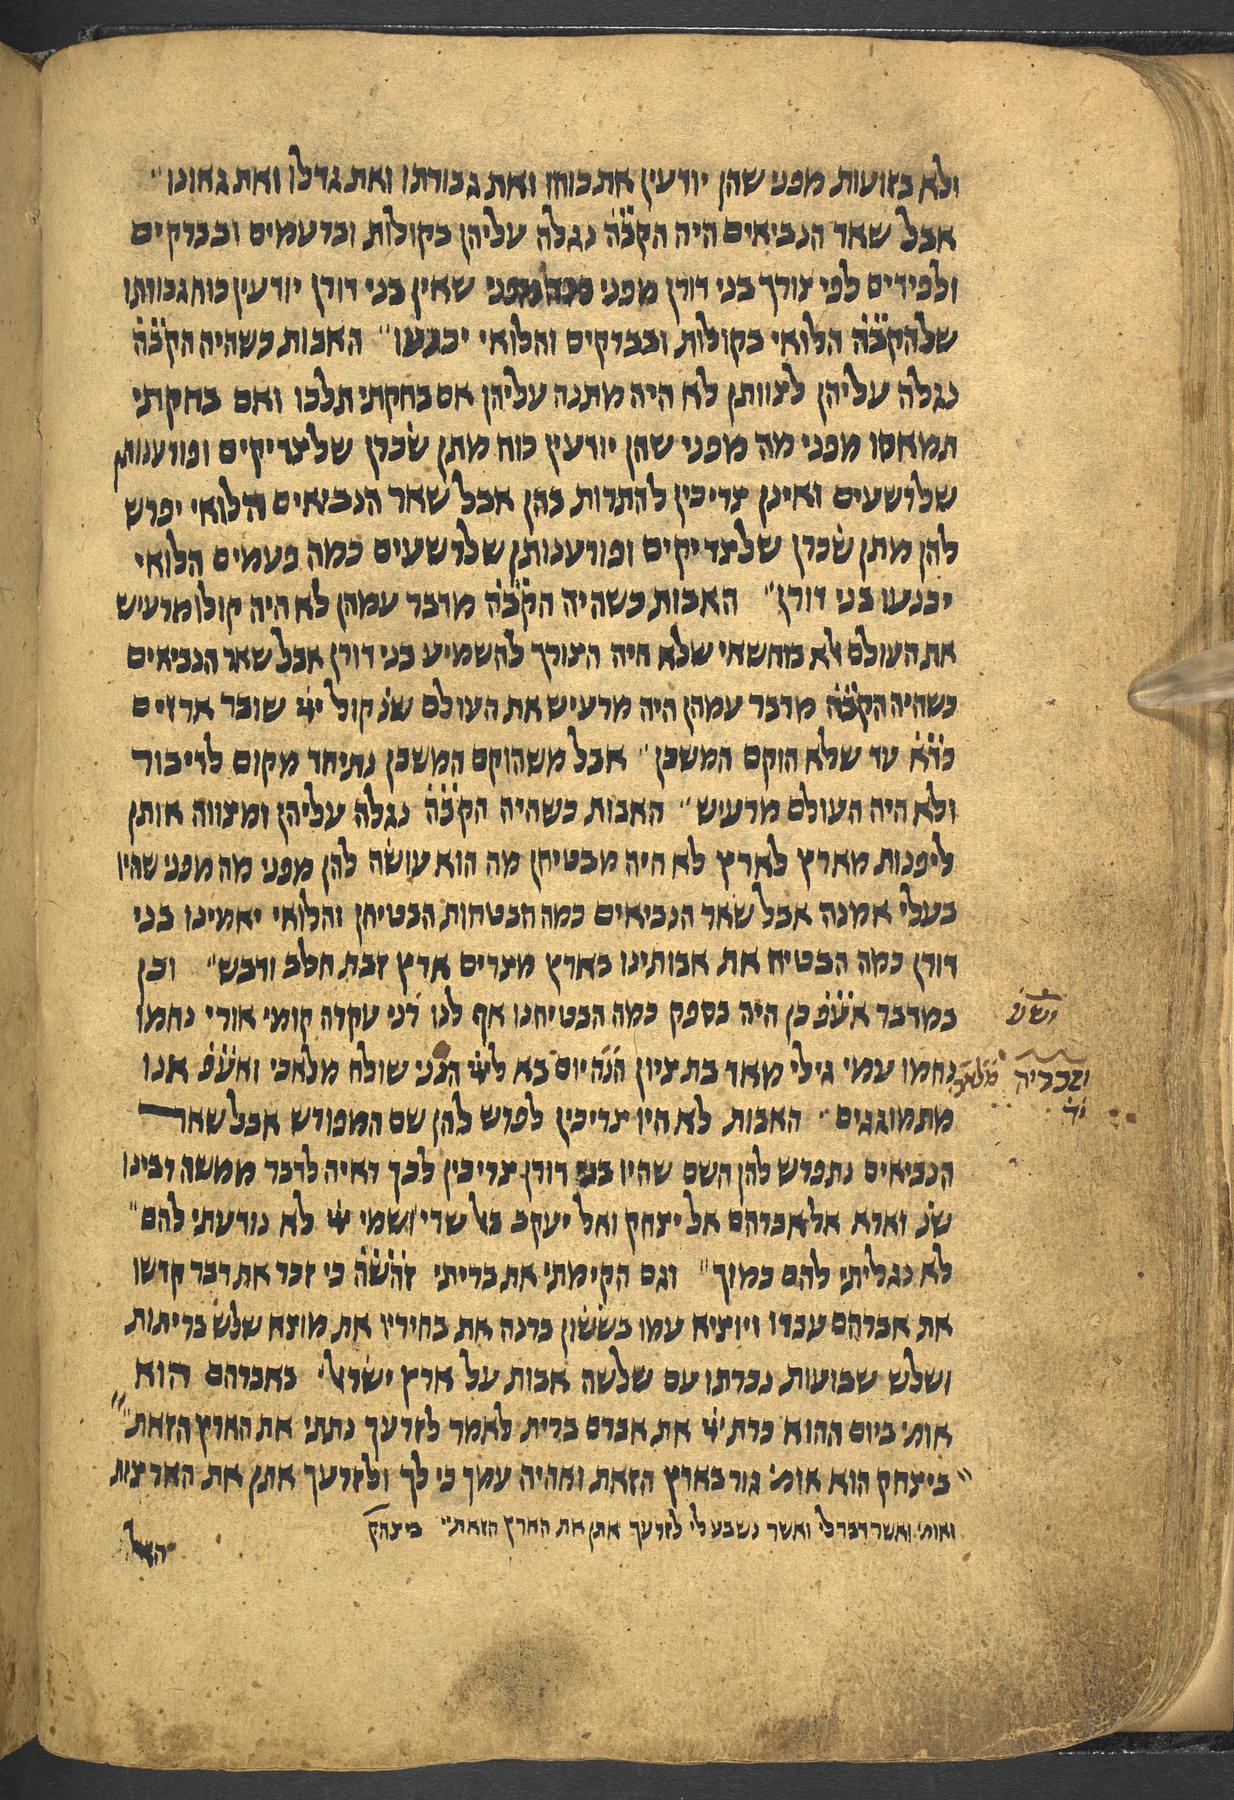 ולא בזועות מפני שהן יודעין את כוחו ואת גבורתו ואת גדלו ואת גאונו
אבל שאר הנביאים היה הקבה נגלה עליהן בקולות וברעמים ובברקים
ולפידים לפי צורך בני דורן מפני שאין בני דורן יודעין כוח גבורתו
שלהקבה הלואי בקולות ובברקים והלואי יכנעו האבות כשהיה הקבה
נגלה עליהן לצוותן לא היה מתנה עליהן אם בחקתי תלכו ואם בחקתי
תמאסו מפני מה מפני שהן יודעין כוח מתן שכרן שלצדיקים ופורענותן
שלרשעים ואינן צריכין להתרות בהן אבל שאר הנביאים הלואי יפרש
להן מתן שכרן שלצדיקים ופורענותן שלרשעים כמה פעמים הלואי
יכנעו בני דורן האבות כשהיה הקבה מדבר עמהן לא היה קולו מרעיש
את העולם לא מחשאי שלא היה הצורך להשמיע בני דורן אבל שאר הנביאים
כשהיה הקבה מדבר עמהן היה מרעיש את העולם שנ קול יי שובר ארזים
כדא עד שלא הוקם המשכן אבל משהוקם המשכן נתיחד מקום לדיבור
ולא היה העולם מרעיש האבות כשהיה הקבה נגלה עליהן ומצווה אותן
ליפנות מארץ לארץ לא היה מבטיחן מה הוא עושה להן מפני מה מפני שהיו
בעלי אמנה אבל שאר הנביאים כמה הבטחות הבטיחן והלואי יאמינו בני
דורן כמה הבטיח את אבותינו בארץ מצרים ארץ זבת חלב ודבש וכן
במדבר אעפ כן היה בספק כמה הבטיחנו אף לנו רני עקרה קומי אורי נחמו
נחמו עמי גילי מאד בת ציון הנה יום בא ליי הנני שולח מלאכי ואעפ אנו
מתמוגגים האבות לא היו צריכין לפרש להן שם המפורש אבל שאר
הנביאים נתפרש להן השם שהיו בני דורן צריכין לכך ראיה לדבר ממשה רבינו
שנ וארא אל אברהם אל יצחק ואל יעקב באל שדי ושמי יי לא נודעתי להם
לא נגליתי להם כמוך וגם הקימתי את בריתי זהשה כי זכר את דבר קדשו
את אברהם עבדו ויוציא עמו בששון ברנה את בחיריו את מוצא שלש בריתות
ושלש שבועות נכרתו עם שלשה אבות על ארץ ישראל באברהם הוא
אומ ביום ההוא כרת יי את אברם ברית לאמר לזרעך נתתי את הארץ הזאת
ביצחק הוא אומ גור בארץ הזאת ואהיה עמך כי לך ולזרעך אתן את הארצות
ואומ ואשר דבר לי ואשר נשבע לי לזרעך אתן את הארץ הזאת ביצחק
האל
ישע
וזכריה מלאכי
יד